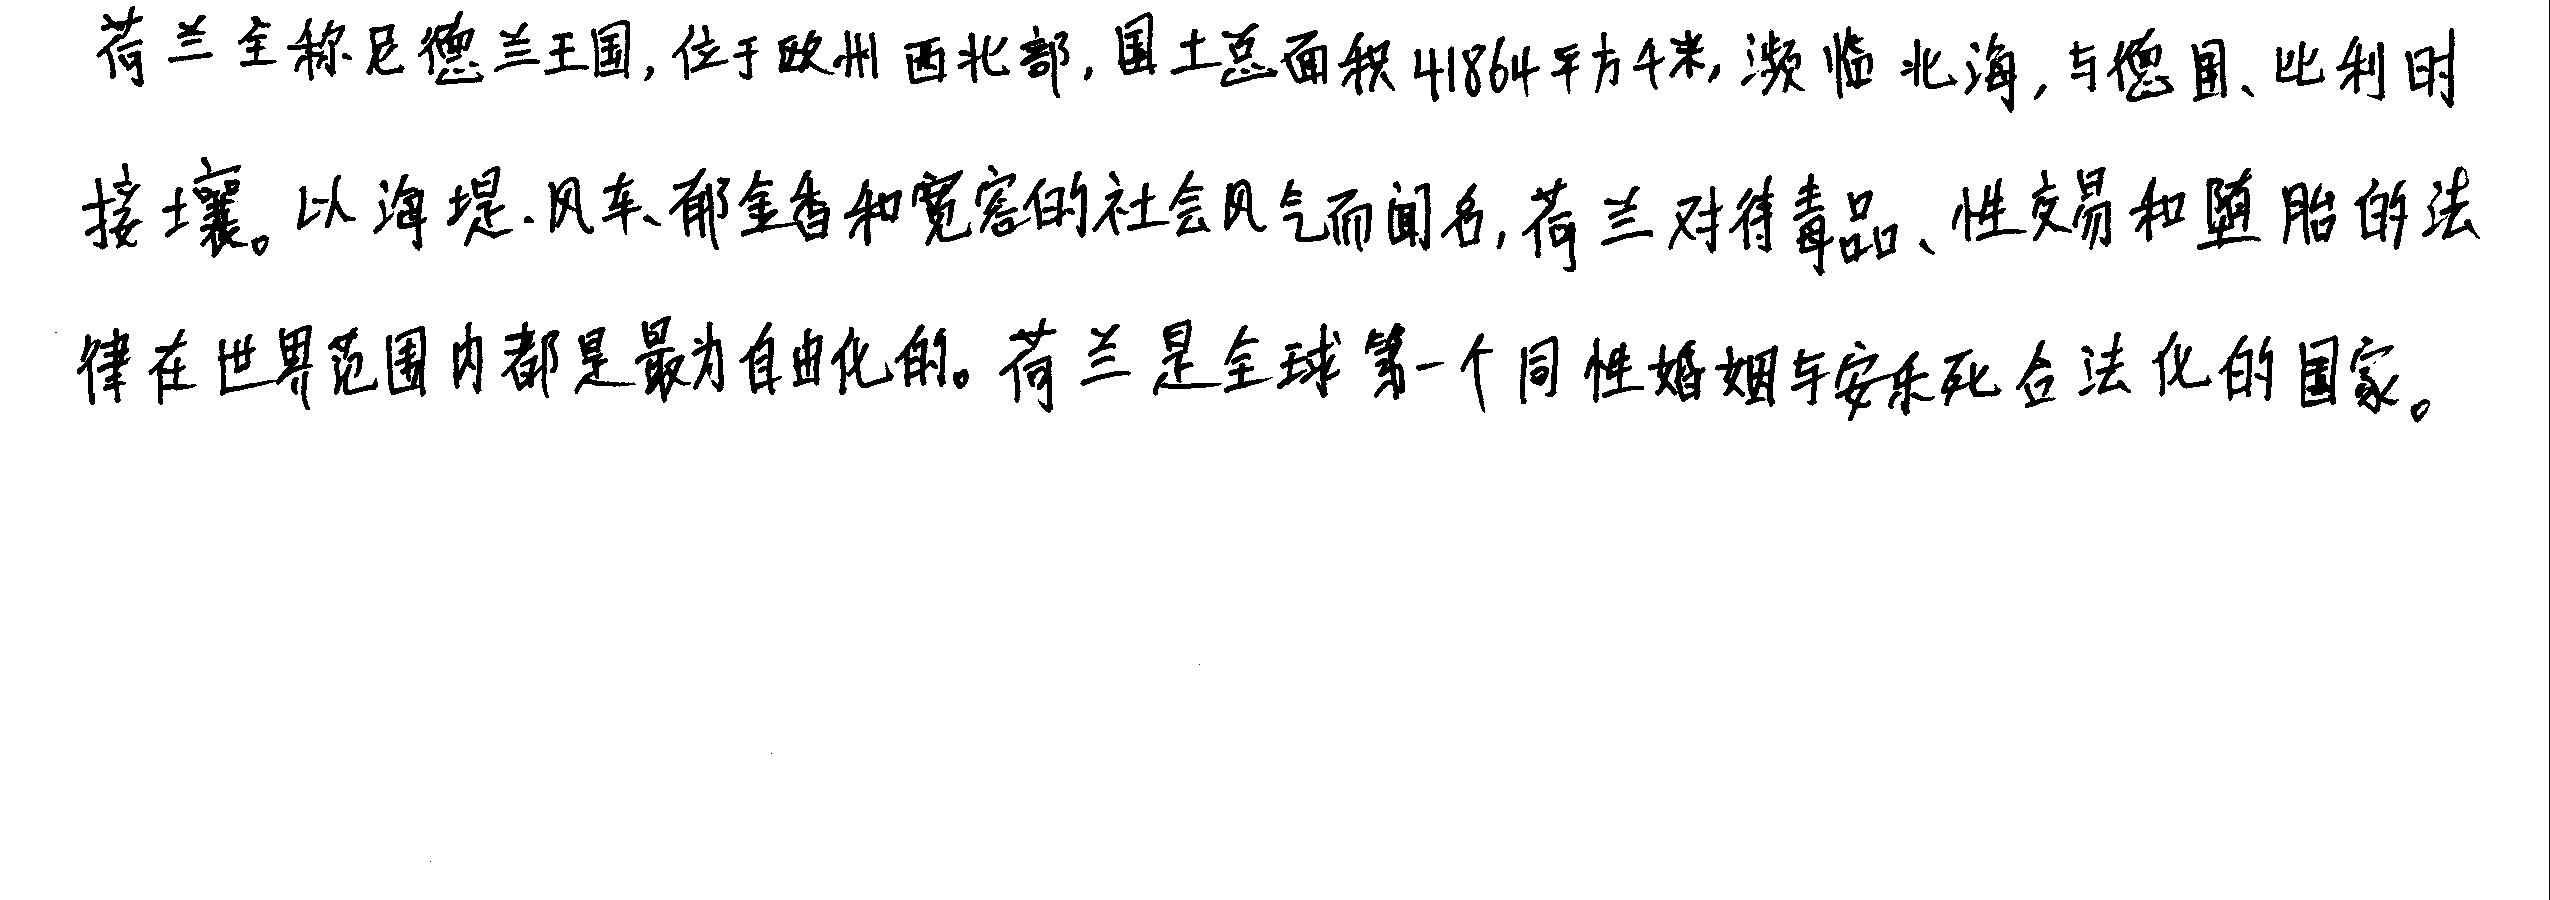 荷兰全称尼德兰王国,位于欧州西北部,国土总面积41864平方千米,濒临北海,与德国、比利时
接壤。以海堤、风车、郁金香和宽容的社会风气而闻名,荷兰对待毒品、性交易和堕胎的法
律在世界范围内都是最为自由化的。荷兰是全球第一个同性婚姻与安乐死合法化的国家。